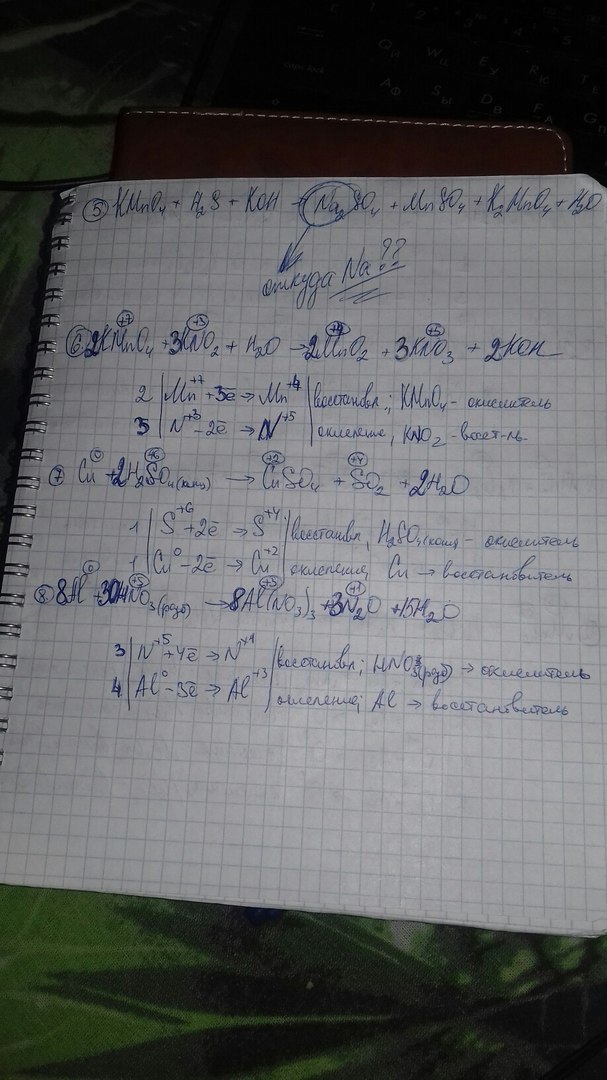 ⑤ KMnO₄ + H₂S + KOH → Na₂SO₄ + MnSO₄ + K₂MnO₄ + H₂O
откуда Na??
+7 +3 +4 +5
⑥ 2KMnO₄ + 3KNO₂ + H₂O → 2MnO₂ + 3KNO₃ + 2KOH
2 | Mn⁺⁷ + 3ē → Mn⁺⁴ | восстановл.; KMnO₄ - окислитель
3 | N⁺³ - 2ē → N⁺⁵ | окисление, KNO₂ - восст-ль.
0 +6 +2 +4
⑦ Cu + 2H₂SO₄(конц) → CuSO₄ + SO₂ + 2H₂O
1 | S⁺⁶ + 2ē → S⁺⁴ | восстановл, H₂SO₄(конц) - окислитель
1 | Cu⁰ - 2ē → Cu⁺² | окисление, Cu → восстановитель
0 +5 +3 +1
⑧ 8Al + 30HNO₃(разб) → 8Al(NO₃)₃ + 3N₂O + 15H₂O
3 | N⁺⁵ + 4ē → N⁺¹ | восстановл; HNO₃(разб) → окислитель
4 | Al⁰ - 3ē → Al⁺³ | окисление; Al → восстановитель